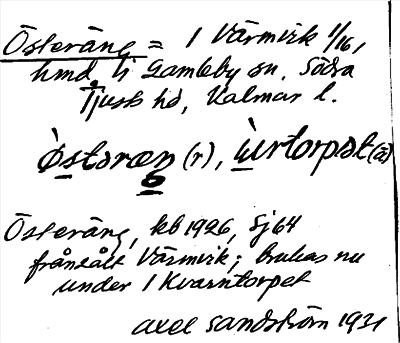 Österäng = 1 Värmvik 1/16,
hmd. ti Gamleby sn. Södra
Tjusts hd, Kalmar l.
ò̀stəræŋ (r), ùrtorpət (ä)
Österäng, kb 1926, Sj 64
frånsåld Värmvik; brukas nu
under 1 Kvarntorpet
Axel Sandström 1931